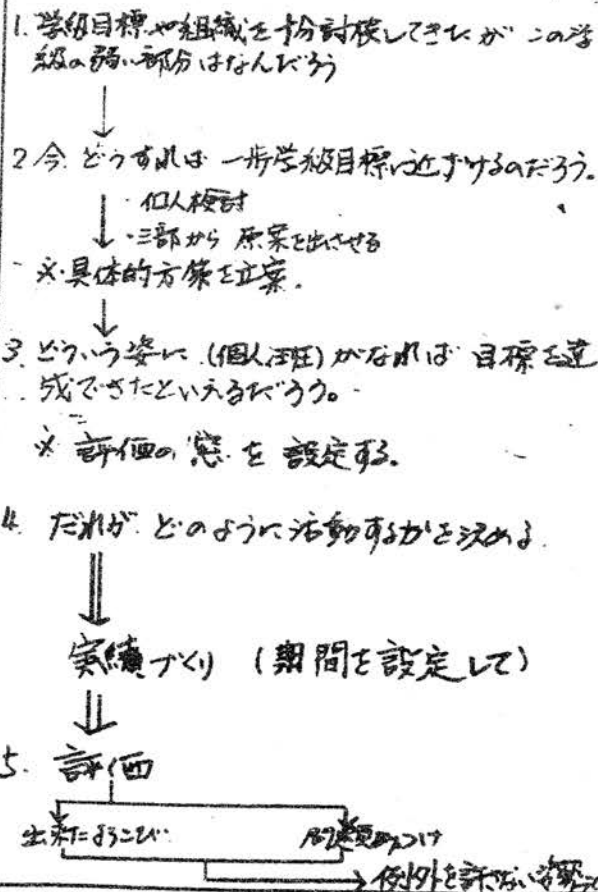 1. 学級目標や組織を十分討検してきたが この学
級の弱い部分はなんだろう
↓
2 今. どうすれば 一歩学級目標に近ずけるのだろう。
・個人検討
↓ ・三部から 原案を出させる
※ 具体的方策を立案.
↓
3. どういう姿に (個人・班) がなれば 目標を達
成できたといえるだろう。
※ 評価の窓を設定する.
4. だれが. どのように活動するかを決める.
⇓
実績づくり (期間を設定して)
⇓
5. 評価
出来たよろこび
問題
→ 例外を許さない